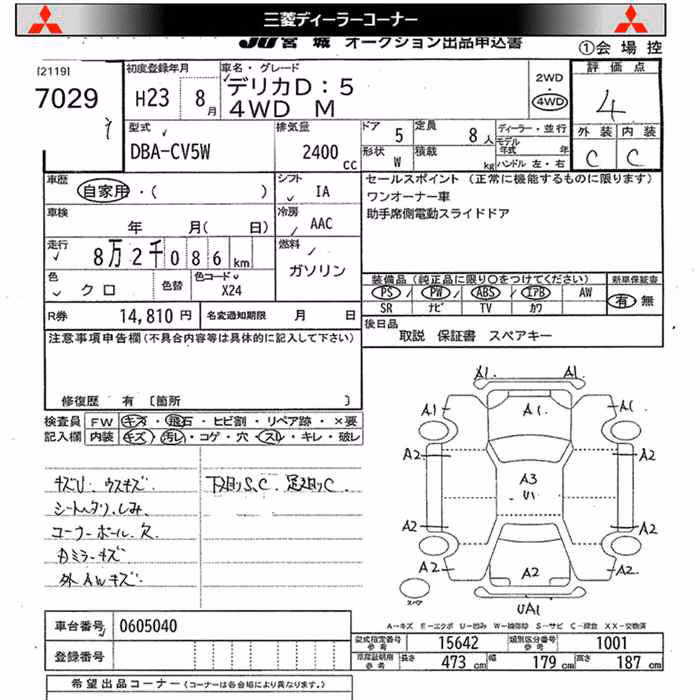 三菱ディーラーコーナー
JU宮城 オークション出品申込書
①会場控
[2119]
7029
初度登録年月
H23 8月
車名・グレード
デリカD:5
4WD M
2WD
4WD
評価点
4
外装 内装
C C
型式
DBA-CV5W
排気量
2400 CC
ドア 5
定員 8人
形状 W
積載 kg
ディーラー・並行
モデル年式 年
ハンドル 左・右
車歴
自家用・( )
シフト
IA
セールスポイント (正常に機能するものに限ります)
ワンオーナー車
助手席側電動スライドドア
車検
年 月(日)
冷房
AAC
走行
8万2千086km
燃料
ガソリン
色
クロ
色替
色コード
X24
装備品(純正品に限り○をつけてください)
PS PW ABS エアB AW
SR ナビ TV カワ
新車保証書
有 無
R券 14,810 円
名変通知期限 月 日
後日品
取説 保証書 スペアキー
注意事項申告欄(不具合内容等は具体的に記入して下さい)
修復歴 有 [箇所 ]
検査員 FW キズ・飛石・ヒビ割・リペア跡・×要
記入欄 内装 キズ・汚レ・コゲ・穴・スレ・キレ・破レ
キズU. ウスキズ
下廻りS,C. 足廻りC.
コーナーポール欠
ミラーキズ
外AWキズ
A1. A1.
A1 A1. A1
A2 A3 A2
U1
A2 A2
A2 A2 A2
UA1
スペア
A-キズ E-エクボ U-凹み W-補修跡 S-サビ C-腐食 XX-交換済
車台番号 0605040
登録番号
型式指定番号 参考 15642
類別区分番号 参考 1001
車庫証明用 参考 長さ 473 cm 幅 179 cm 高さ 187 cm
希望出品コーナー (コーナーは各会場により異なります。)